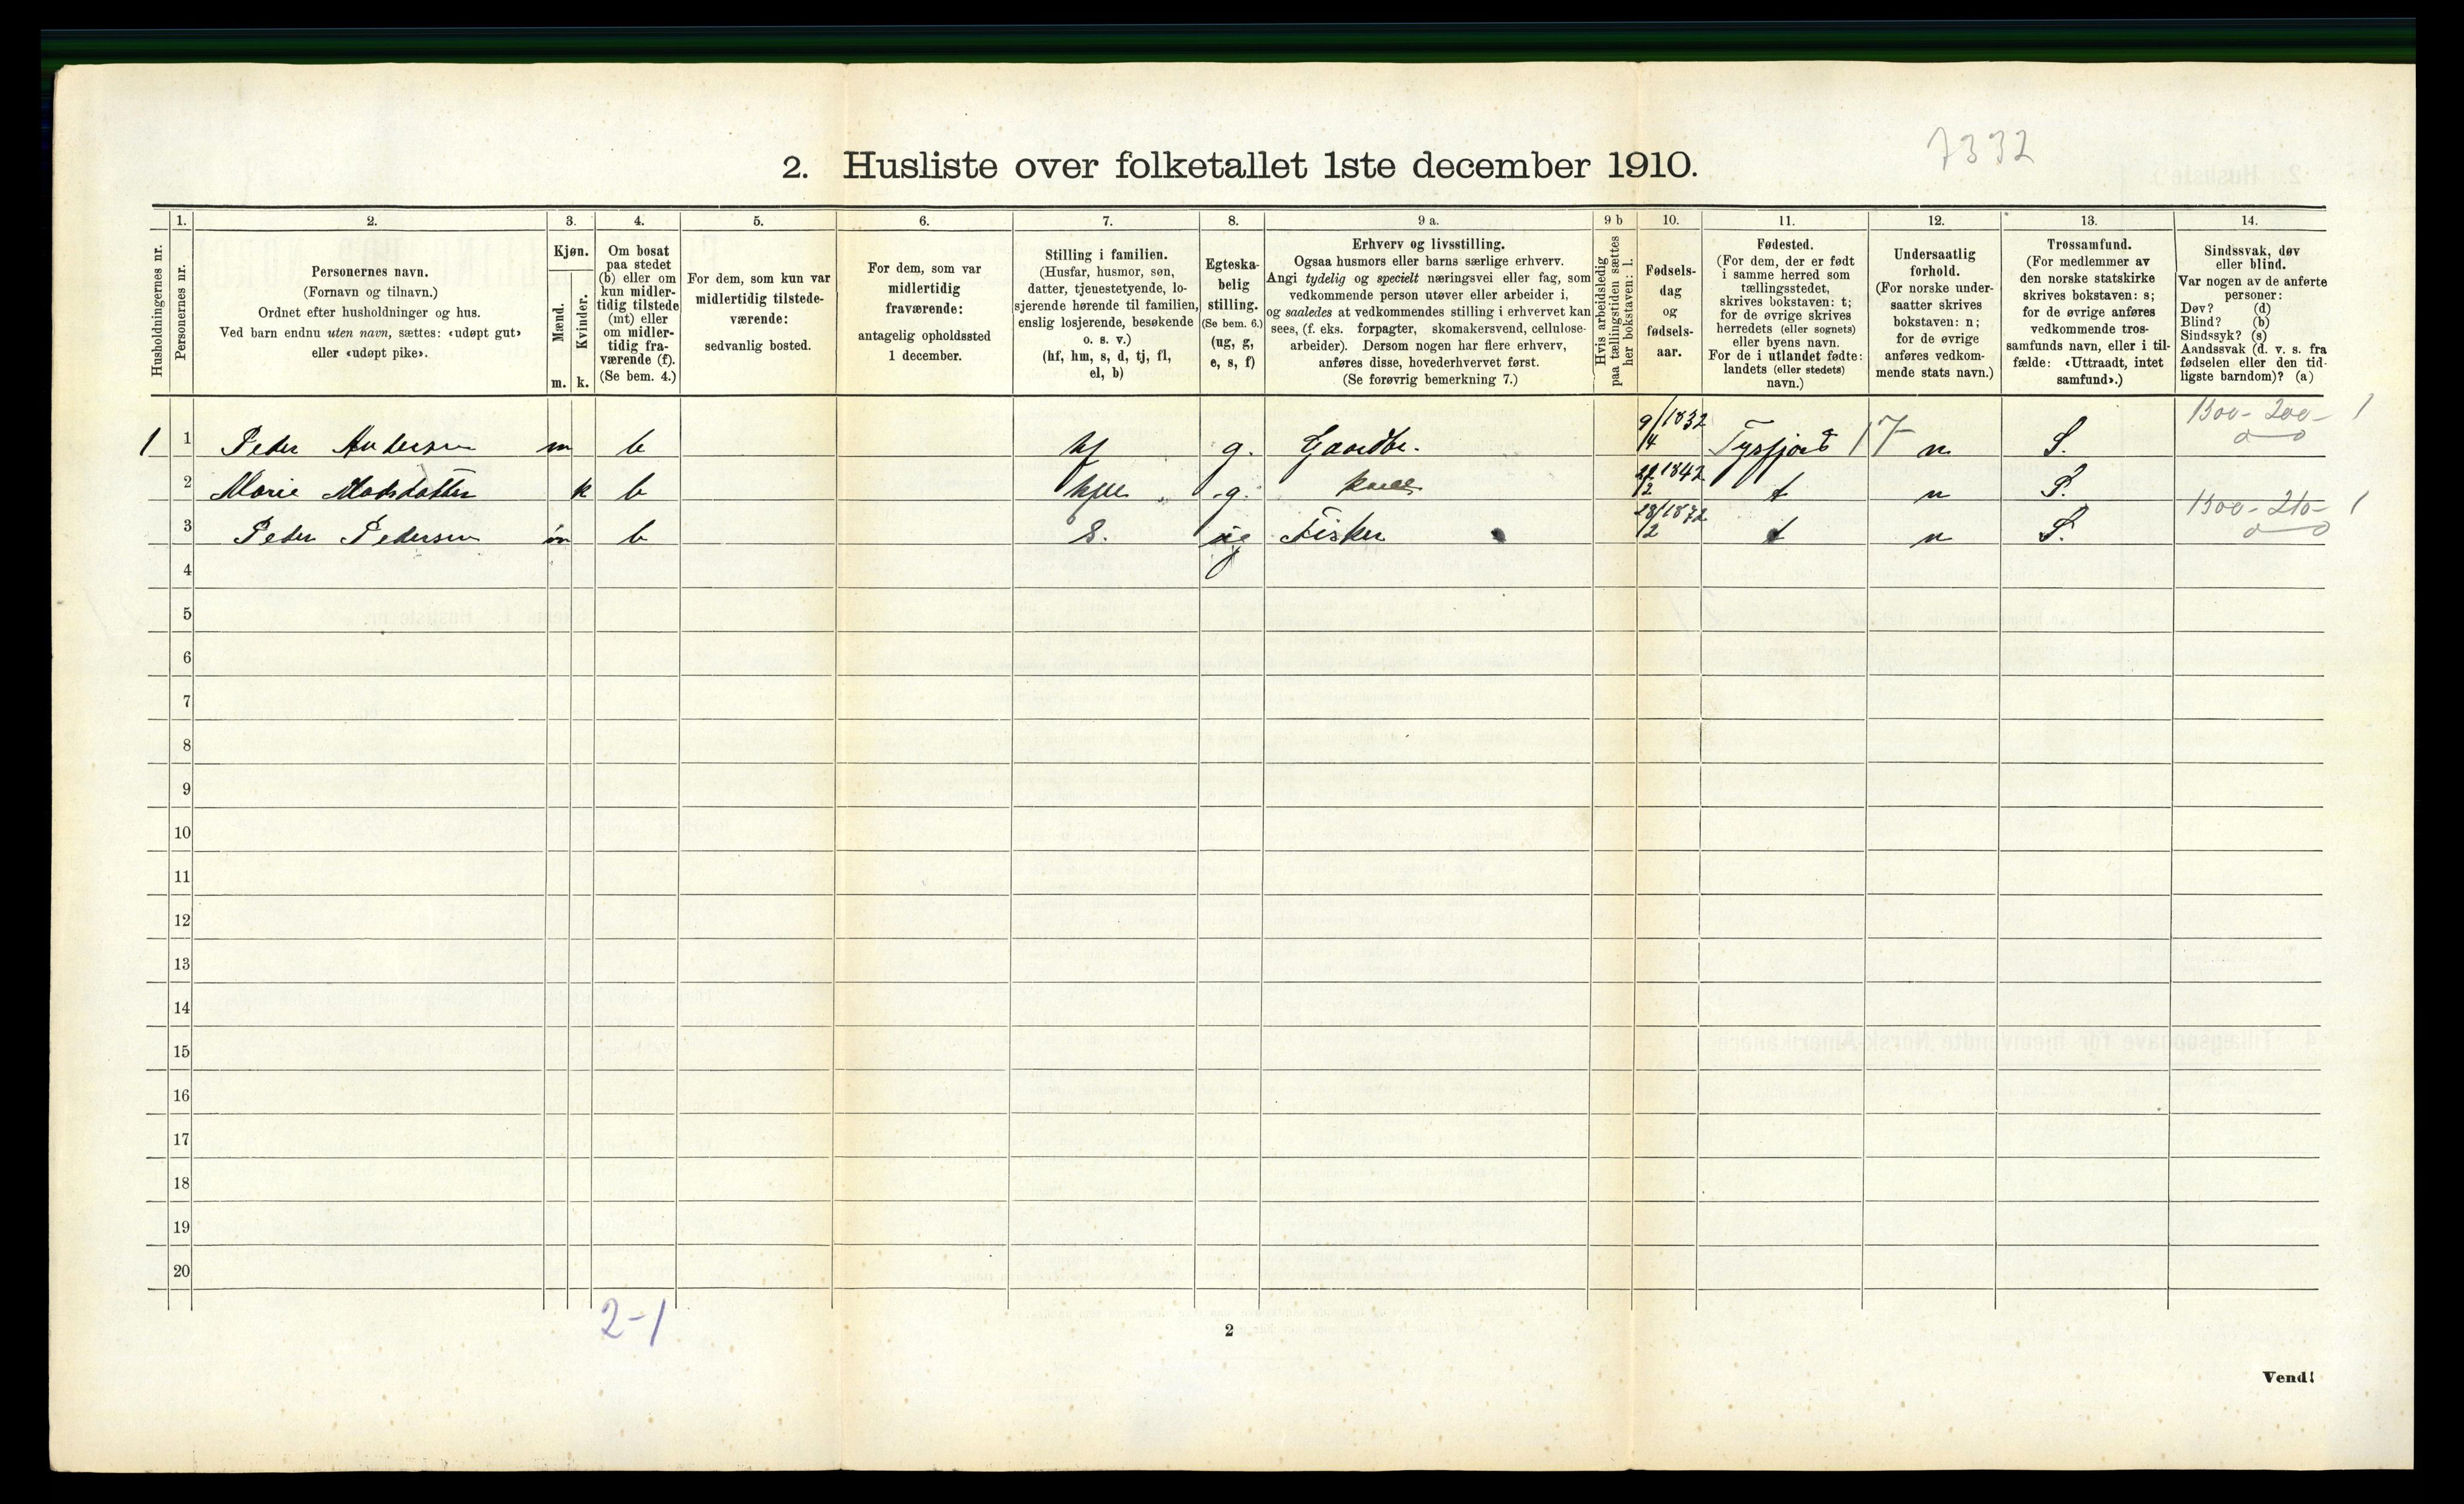 7332
2. Husliste over folketallet 1ste december 1910.
Husholdningernes nr.
1.
Personernes nr.
2.
Personernes navn.
(Fornavn og tilnavn.)
Ordnet efter husholdninger og hus.
Ved barn endnu uten navn, sættes: «udøpt gut»
eller «udøpt pike».
3.
Kjøn.
Mænd.
Kvinder.
m. k.
4.
Om bosat
paa stedet
(b) eller om
kun midler-
tidig tilstede
(mt) eller
om midler-
tidig fra-
værende (f).
(Se bem. 4.)
5.
For dem, som kun var
midlertidig tilstede-
værende:
sedvanlig bosted.
6.
For dem, som var
midlertidig
fraværende:
antagelig opholdssted
1 december.
7.
Stilling i familien.
(Husfar, husmor, søn,
datter, tjenestetyende, lo-
sjerende hørende til familien,
enslig losjerende, besøkende
o. s. v.)
(hf, hm, s, d, tj, fl,
el, b)
8.
Egteska-
belig
stilling.
(Se bem. 6.)
(ug, g,
e, s, f)
9 a.
Erhverv og livsstilling.
Ogsaa husmors eller barns særlige erhverv.
Angi tydelig og specielt næringsvei eller fag, som
vedkommende person utøver eller arbeider i,
og saaledes at vedkommendes stilling i erhvervet kan
sees, (f. eks. forpagter, skomakersvend, cellulose-
arbeider). Dersom nogen har flere erhverv,
anføres disse, hovederhvervet først.
(Se forøvrig bemerkning 7.)
9 b
Hvis arbeidsledig
paa tællingstiden sættes
her bokstaven: l.
10.
Fødsels-
dag
og
fødsels-
aar.
11.
Fødested.
(For dem, der er født
i samme herred som
tællingsstedet,
skrives bokstaven: t;
for de øvrige skrives
herredets (eller sognets)
eller byens navn.
For de i utlandet fødte:
landets (eller stedets)
navn.)
12.
Undersaatlig
forhold.
(For norske under-
saatter skrives
bokstaven: n;
for de øvrige
anføres vedkom-
mende stats navn.)
13.
Trossamfund.
(For medlemmer av
den norske statskirke
skrives bokstaven: s;
for de øvrige anføres
vedkommende tros-
samfunds navn, eller i til-
fælde: «Uttraadt, intet
samfund».)
14.
Sindssvak, døv
eller blind.
Var nogen av de anførte
personer:
Døv? (d)
Blind? (b)
Sindssyk? (s)
Aandssvak (d. v. s. fra
fødselen eller den tid-
ligste barndom)? (a)
1 1 Peder Andersen m b hf g. Gaardbr. 9/4 1832 Tysfjord 17 n S. 1300- 200- 1
0—0
2 Marie Madsdatter k b g. 1842 t n S.
3 Peder Pedersen m b S. ug Fisker 1872 t n S. 1300- 210- 1
0—0
4
5
6
7
8
9
10
11
12
13
14
15
16
17
18
19
20
2-1
2
Vend!